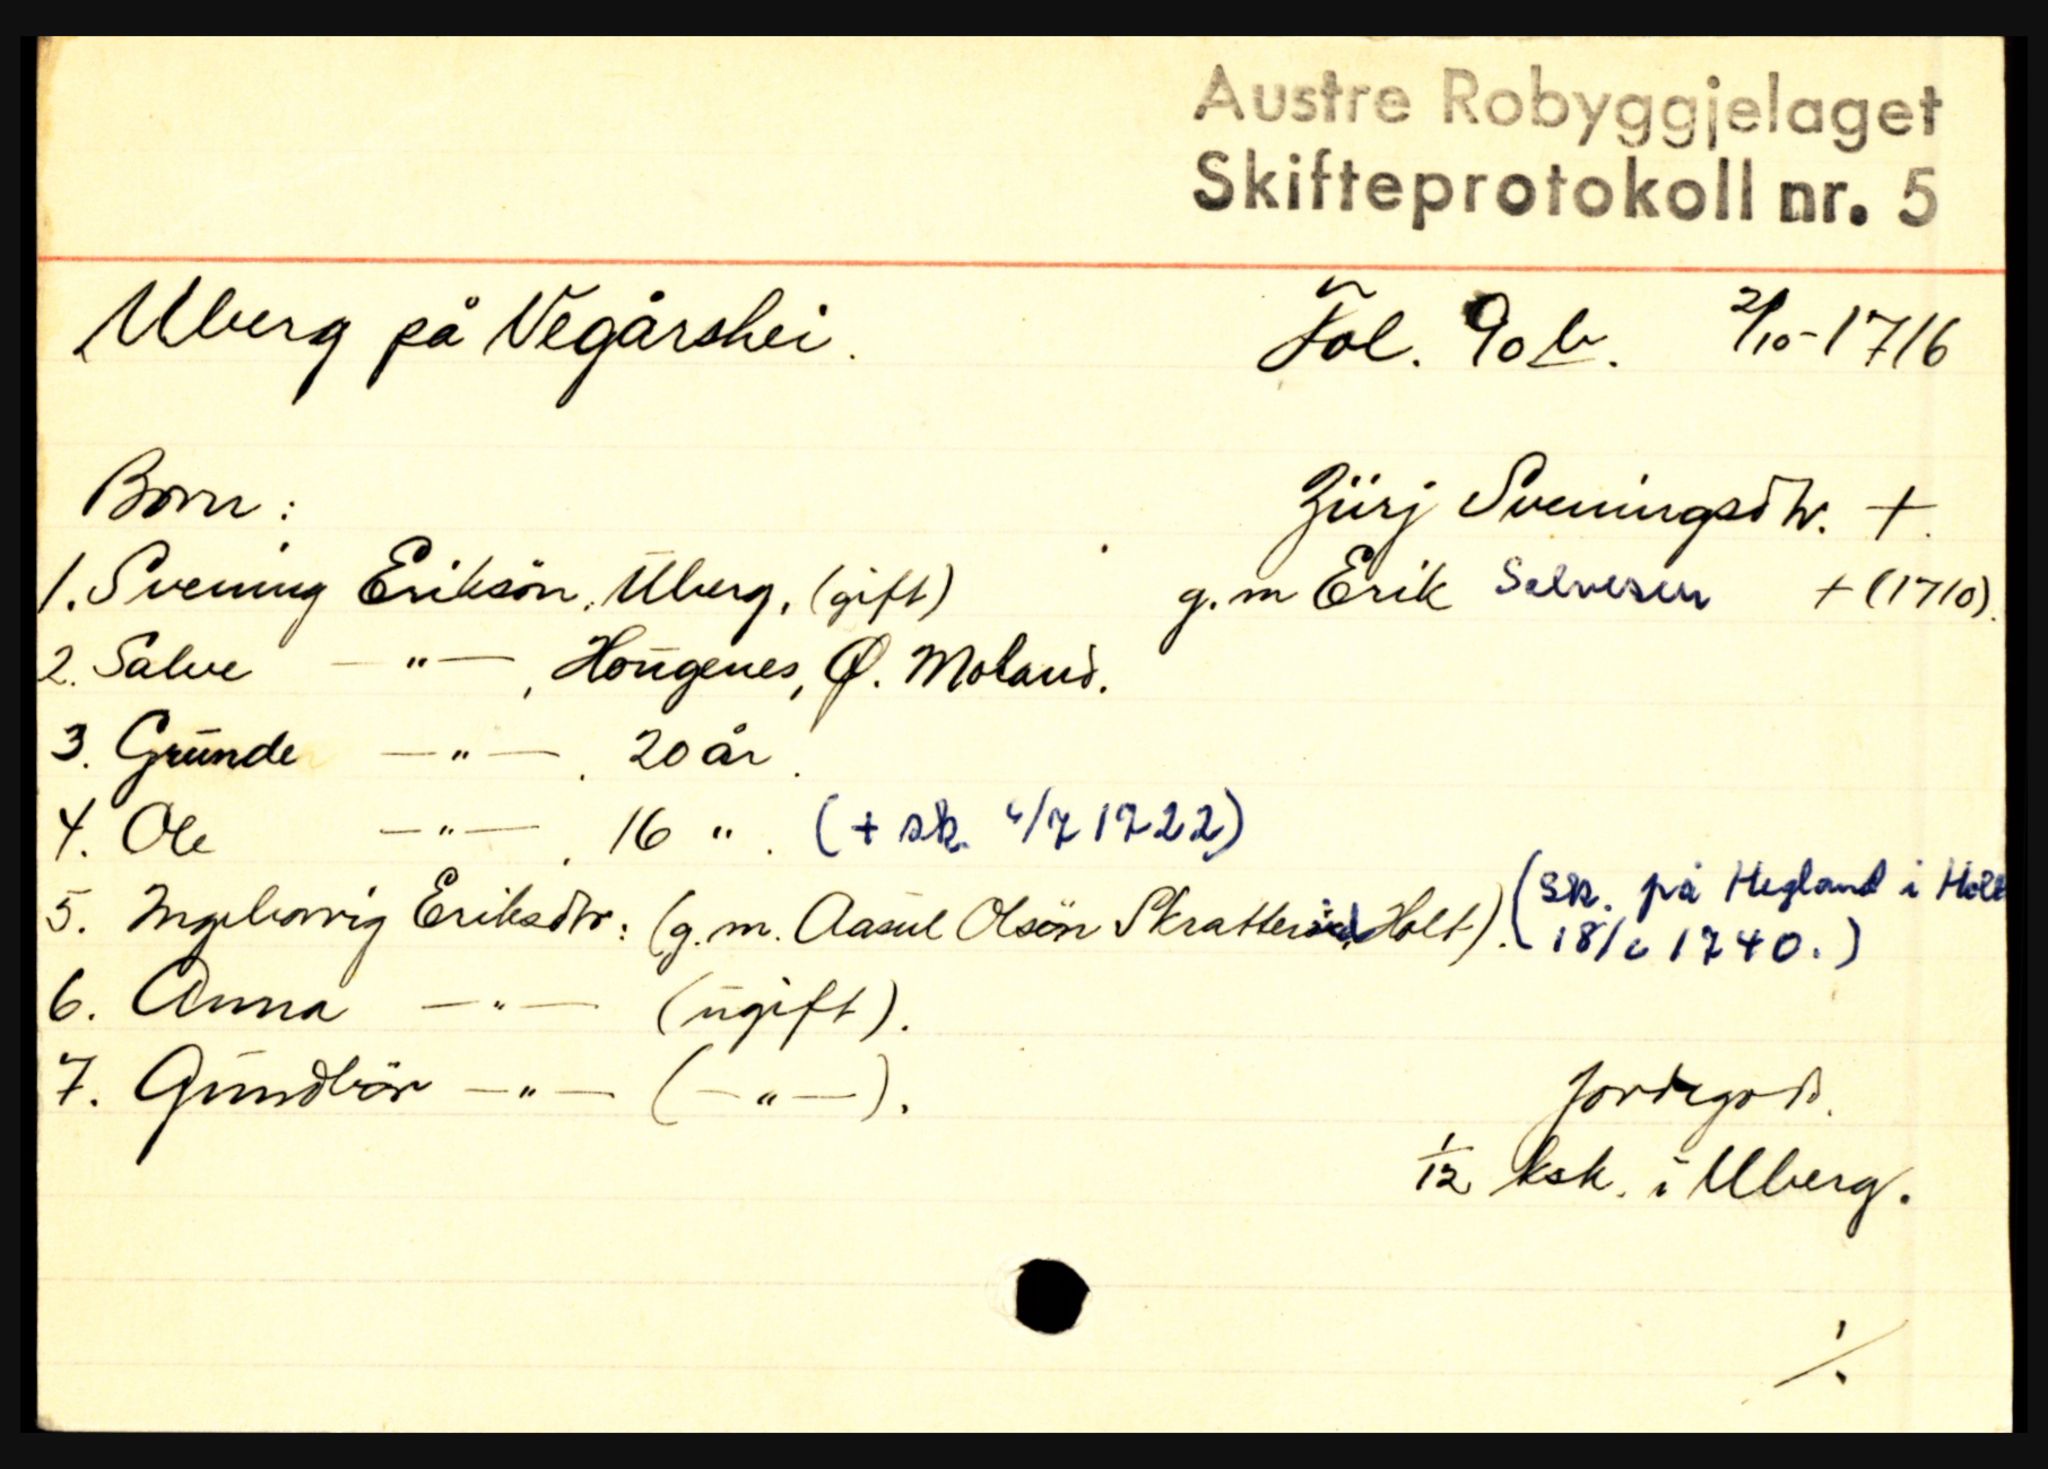 Austre Robyggjelaget
Skifteprotokoll nr. 5
Uberg på Vegårshei. Fol. 90 b. 2/10-1716
Born: Jürj Sveningsdtr. +.
1. Svening Eriksön, Uberg, (gift) g.m Erik Salvesen + (1710).
2. Salve —"—, Hougenes, Ø. Moland.
3. Grunde —"—. 20 år.
4. Ole —"—. 16 ". (+ sk. 4/7 1722)
5. Ingeborrig Eriksdtr: (g.m. Aasul Olsön Skratter Holt). (sk. på Hegland i Holt
18/6 1740.)
6. Anna —"— (ugift).
7. Gundbör —"— (—"—).
Jordegods.
1/12 ksk. i Uberg.